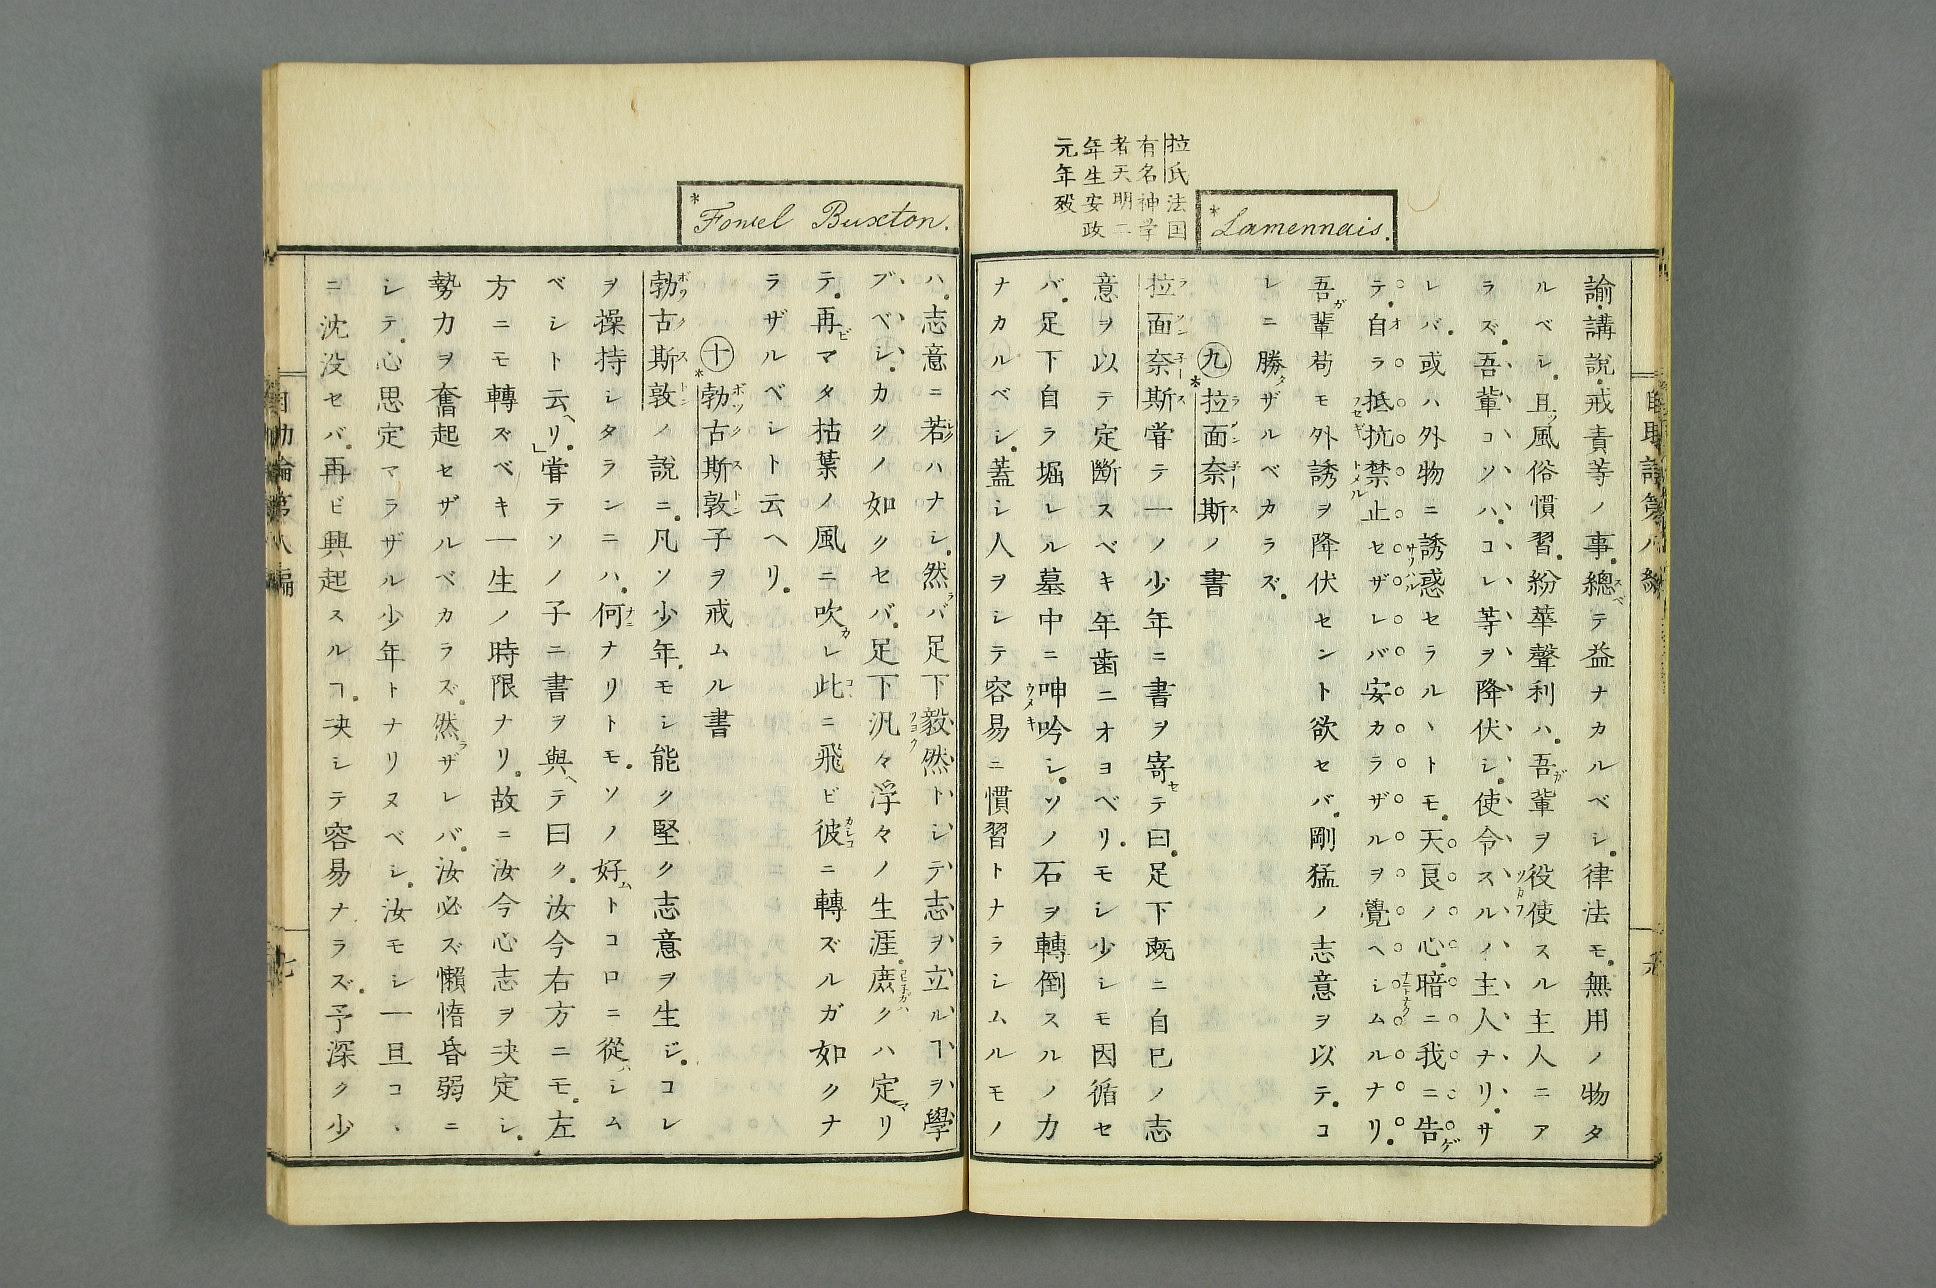 拉氏法国
有名神学
者天明二
年生安政
元年歿
*Lamennais.
諭講說戒責等ノ事。總テ益ナカルベシ。律法モ。無用ノ物タ
ルベシ。且風俗慣習。紛華聲利ハ。吾輩ヲ役使スル主人ニア
ラズ。吾輩コソハ。コレ等ヲ降伏シ。使令スルノ主人ナリ。サ
レバ。或ハ外物ニ誘惑セラルヽトモ。天良ノ心。暗ニ我ニ告
テ。自ラ抵抗禁止セザレバ安カラザルヲ覺ヘシムルナリ。
吾輩苟モ外誘ヲ降伏セント欲セバ。剛猛ノ志意ヲ以テ。コ
レニ勝ザルベカラズ。
九 *拉面奈斯ノ書
拉面奈斯甞テ一ノ少年ニ書ヲ寄テ曰。足下既ニ自己ノ志
意ヲ以テ定斷スベキ年齒ニオヨベリ。モシ少シモ因循セ
バ。足下自ラ堀レル墓中ニ呻吟シ。ソノ石ヲ轉倒スルノカ
ナカルベシ。蓋シ人ヲシテ容易ニ慣習トナラシムルモノ
*Fowel Buxton.
ハ。志意ニ若ハナシ。然バ足下毅然トシテ志ヲ立ルヿヲ學
ブベシ。カクノ如クセバ。足下汎々浮々ノ生涯。庶クハ定リ
テ。再マタ枯葉ノ風ニ吹レ此ニ飛ビ彼ニ轉ズルガ如クナ
ラザルベシト云ヘリ。
十 *勃古斯敦子ヲ戒ムル書
勃古斯敦ノ說ニ。凡ソ少年。モシ能ク堅ク志意ヲ生ジ。コレ
ヲ操持シタランニハ。何ナリトモ。ソノ好トコロニ從シム
ベシト云リ。」甞テソノ子ニ書ヲ與テ曰ク。汝今右方ニモ。左
方ニモ轉ズベキ一生ノ時限ナリ。故ニ汝今心志ヲ决定シ。
勢力ヲ奮起セザルベカラズ。然ザレバ。汝必ズ懶惰昏弱ニ
シテ。心思定マラザル少年トナリヌベシ。汝モシ一旦コヽ
ニ沈没セバ。再ビ興起スルヿ。决シテ容易ナラズ。予深ク少
自助論第八編
七